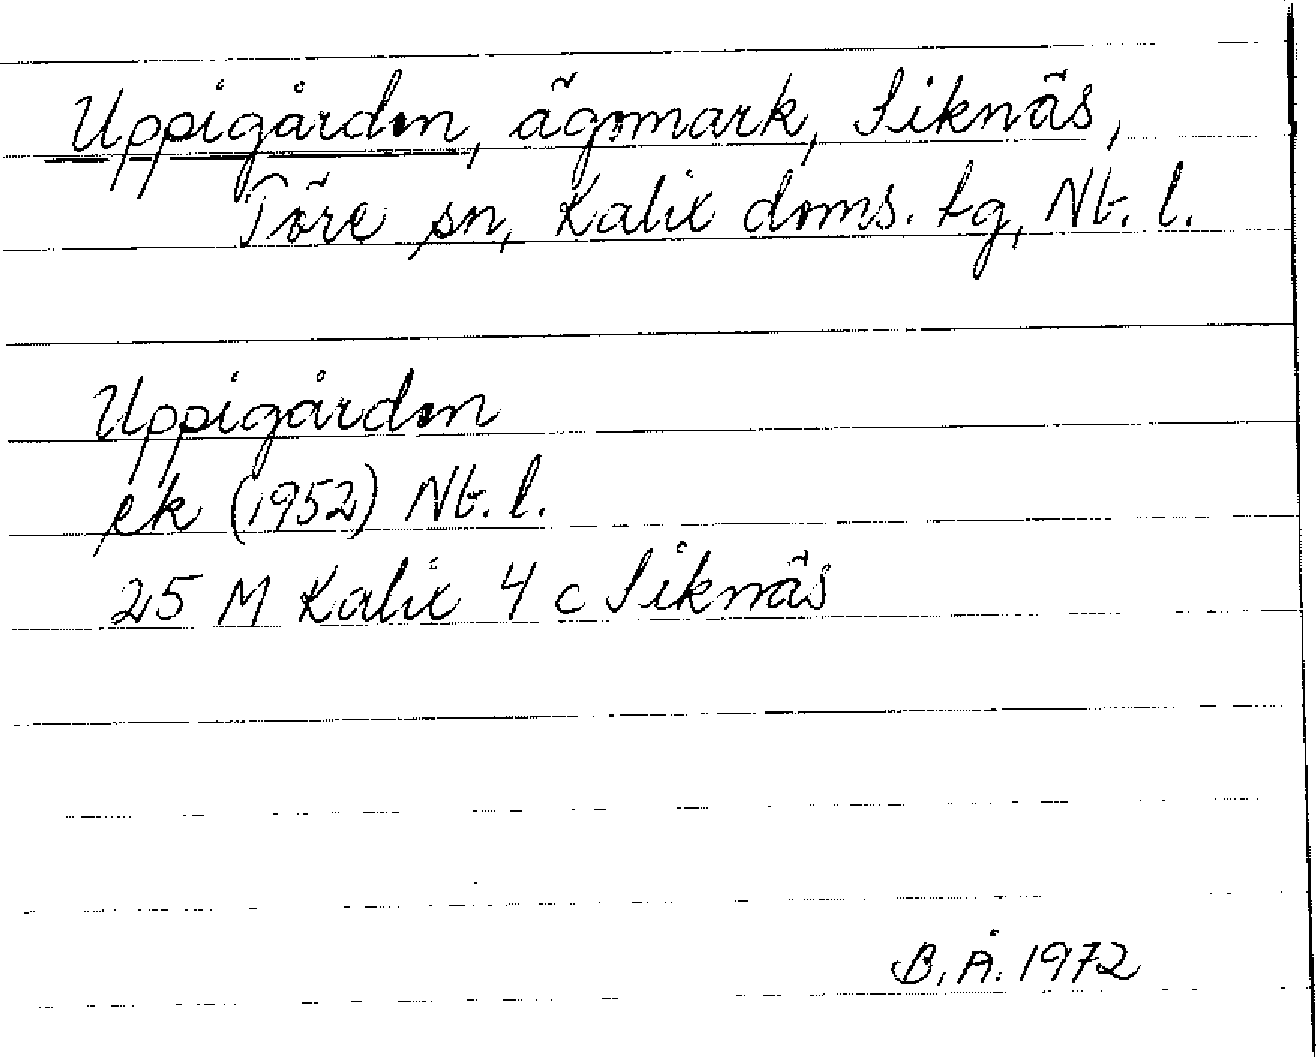 Uppigården, ägomark, Siknäs,
Töre sn, Kalix doms. tg, Nb. l.
Uppigården
ek (1952) Nb. l.
25 M Kalix 4 c Siknäs
B. Å. 1972